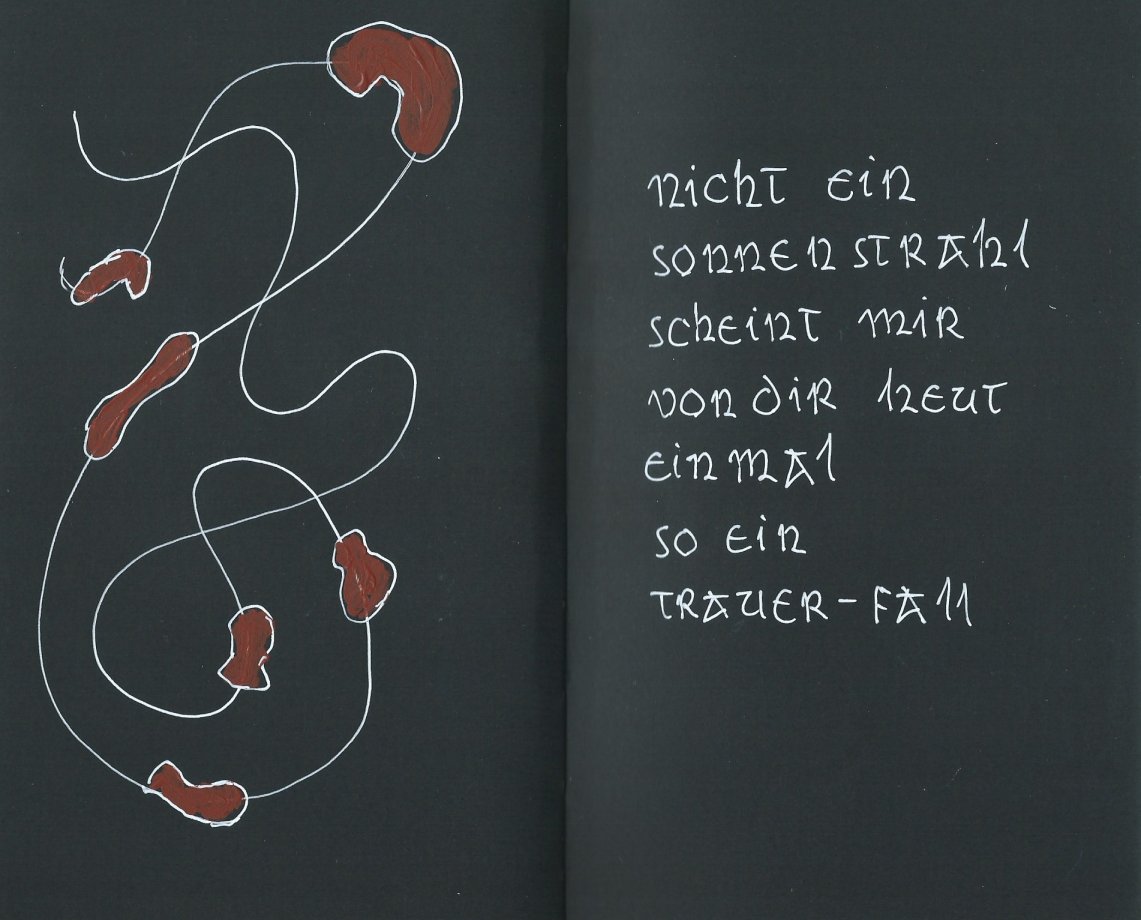 nicht ein
sonnenstrahl
scheint mir
von dir heut
einmal
so ein
trauer-fall